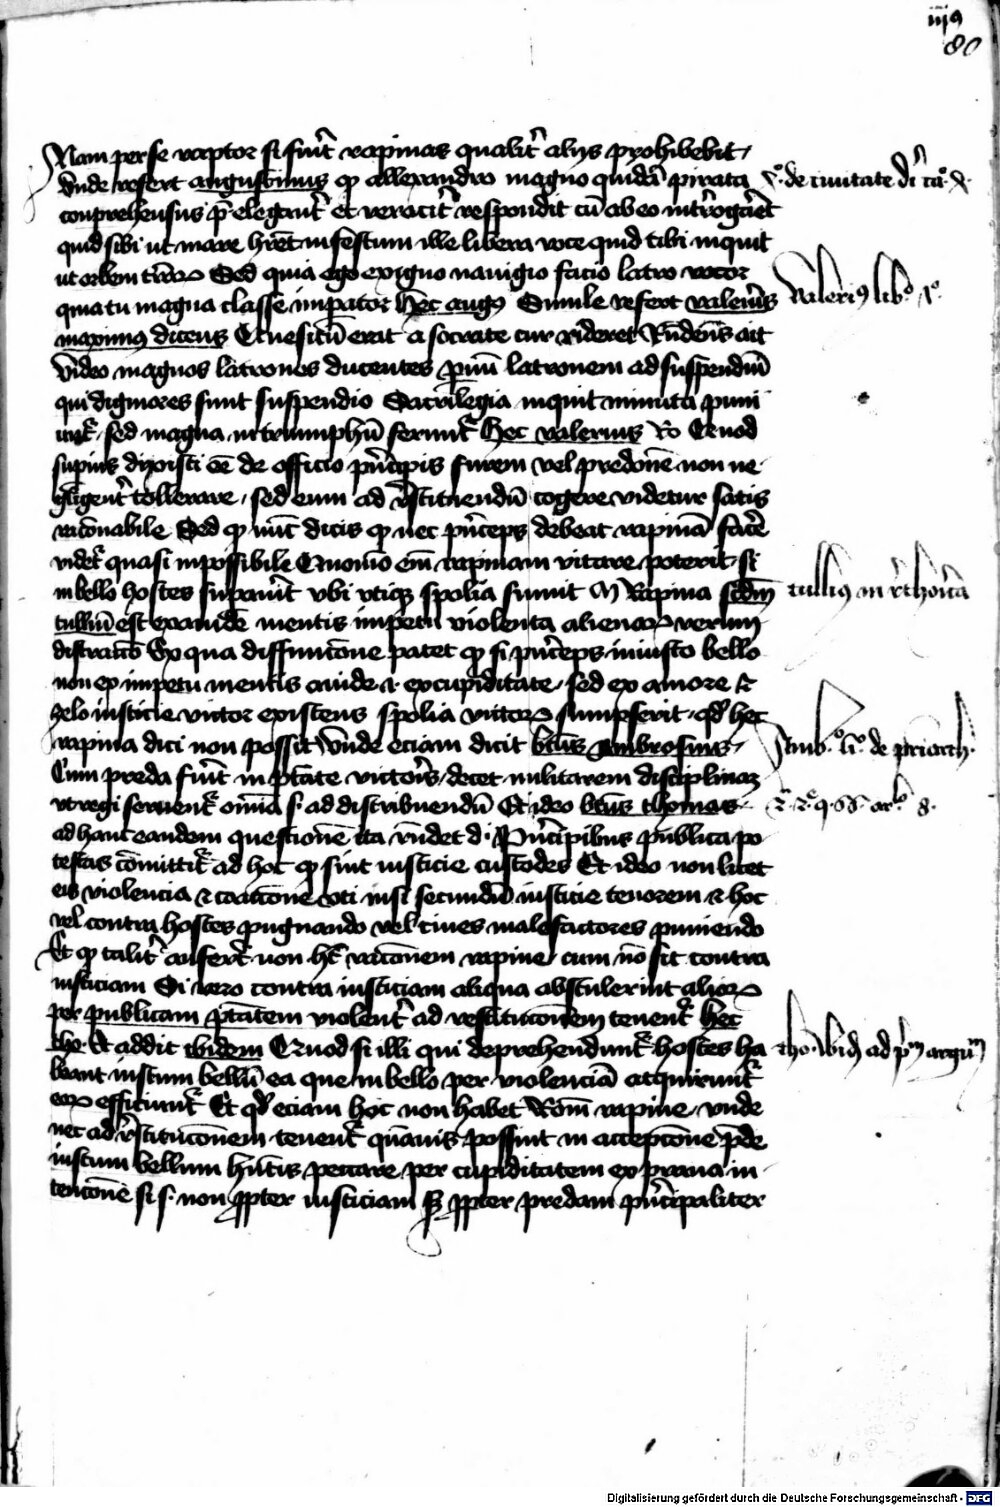 iiij9
80
Nam per se raptor si fuit̃ rapinas qualit̃ alijs prohibebit
Vnde refert augustinus qp allexandro magno quidã pirata
conprehensus p̃ elegant̃ et veracit̃ respondit cũ ab eo int̃rogar̃et
quid sibi ut mare hr̃et infestum ille libera voce quid tibi inquit
ut orbem t̃rarꝝ Sed quia ego exiguo nauigio facio latro vocor
quia tu magna classe inpator hec aug9 Simile refert valeri9
maxim9 dicens Quesitũ erat a socrate cur rideret Rñdens ait
Video magnos latrones ducentes puũ latronem ad suspendiũ
qui digniores sunt suspendio Sacrilegia inquit minuta puni
unt̃ sed magna in triumphũ ferunt̃ hec valerius Ro Quod
supius dixisti eẽ de officio pñcipis furem vel predonẽ non ne
gligent̃ tollerare, sed eum ad r̃stituendũ cogere videtur satis
racõnabile Sed qp nũc dicis qp nec pñceps debeat rapinã facẽ
videt̃ quasi inpossibile Quomõ em̃ rapinam vitare poterit si
in bello hostes supaũit vbi vtiqꝫ spolia sumit M Rapina scdm
tulliũ est mentis inpetu violenta alienarꝝ rerum
distraccõ Ex qua diffinicõne patet qp si pñceps in iusto bello
non ex inpetu mentis auide ⁊ ex cupiditate, sed ex amore et
zelo iusticie victor existens spolia victorꝝ sumpserit qd̃ hec
rapina dici non possit Vnde eciam dicit bt̃us ambrosius
Cum preda fuit̃ in ptãte victoris decet militarem disciplinaꝫ
vt regi seruent̃ om̃ia s. ad distribuendũ Et ideo bt̃us thomas
ad hanc eandem questionẽ ita rñdet d. Pñcipibus publica po
testas cõmittit̃ ad hoc qp sint iusticie custodes Et ideo non licet
eis violencia ⁊ coaccõne vti nisi secundũ iusticie tenorem ⁊ hoc
vel contra hostes pugnando vel ciues malefactores puniendo
Et qp talit̃ aufert̃ non ht̃ racõnem rapine, cum nõ sit contra
iusticiam Si vero contra iusticiam aliqua abstulerint aliorꝝ
per publicam ptãtem violent̃ ad restitucõnem tenent̃ hec
tho Et addit ibidem Quod si illi qui deprehendunt̃ hostes ha
beant iustum bellũ ea que in bello per violenciã acquirunt̃
eorꝝ efficiunt̃ Et qd̃ eciam hoc non habet Rõm rapine, vnde
nec ad r̃stitucõnem tenent̃ quãuis possint in accepcõne p̃de
iustum bellum hñtis peccare per cupiditatem ex praua in
tencõnẽ si s. non ppter iusticiam sꝫ ppter predam pñcipaliter
de ciuitate di
Valeri9 lib. 1.
tulli9 in r̃thorica
Amb. li. de priarch.
tho. ibid ad p̃m argum
Digitalisierung gefördert durch die Deutsche Forschungsgemeinschaft - DFG